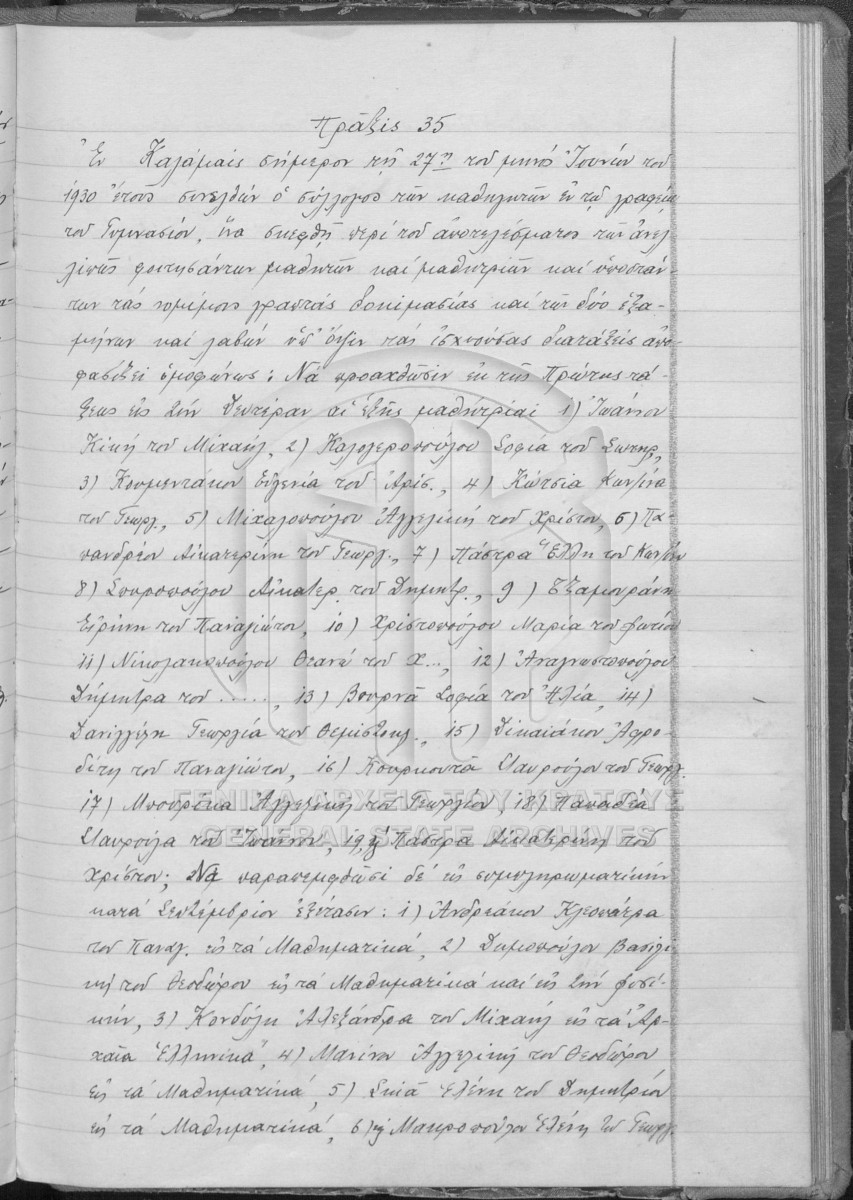 Πρᾶξις 35
Ἐν Καλάμαις σήμερον τῇ 27ῃ τοῦ μηνὸς Ἰουνίου τοῦ
1930 ἔτους συνελθὼν ὁ σύλλογος τῶν καθηγητῶν ἐν τῷ γραφείῳ
τοῦ Γυμνασίου, ἵνα σκεφθῇ περὶ τοῦ ἀποτελέσματος τῶν ἀνελ-
λιπῶς φοιτησάντων μαθητῶν καὶ μαθητριῶν καὶ ὑποστάν-
των τὰς νομίμους γραπτὰς δοκιμασίας καὶ τῶν δύο ἑξα-
μήνων καὶ λαβὼν ὑπ' ὄψιν τὰς ἰσχυούσας διατάξεις ἀπο-
φασίζει ὁμοφώνως: Νὰ προαχθῶσιν ἐκ τῆς Πρώτης τά-
ξεως εἰς τὴν Δευτέραν αἱ ἑξῆς μαθήτριαι 1) Ἰωάννου
Κική τοῦ Μιχαήλ, 2) Καλογεροπούλου Σοφία τοῦ Σωτηρ,
3) Κουμεντάκου Εὐγενία τοῦ Ἀρισ., 4) Κώτσια Κων/να
τοῦ Γεωργ., 5) Μιχαλοπούλου Ἀγγελικὴ τοῦ Χρίστου, 6) Πα-
πανδρέου Αἰκατερίνη τοῦ Γεωργ., 7) Πάστρα Ἕλλη τοῦ Κων/νου
8) Σπυροπούλου Αἰκατερ. τοῦ Δημητρ., 9) Τζαμουράνη
Εἰρήνη τοῦ Παναγιώτου, 10) Χριστοπούλου Μαρία τοῦ Φωτίου
11) Νικολακοπούλου Θεανώ τοῦ Χ..., 12) Ἀναγνωστοπούλου
Δήμητρα τοῦ ......, 13) Βουρνᾶ Σοφία τοῦ Ἠλία, 14)
Γεωργία τοῦ Θεμιστοκλ., 15) Δικαιάκου Ἀφρο-
δίτη τοῦ Παναγιώτου, 16) Κουρκουτᾶ Σταυρούλα τοῦ Γεωργ.
17) Μπουρίκα Ἀγγελικὴ τοῦ Γεωργίου, 18) Παπαδέα
ΓΕΝΙΚΑ ΑΡΧΕΙΑ ΤΟΥ ΚΡΑΤΟΥΣ
GENERAL STATE ARCHIVES
Σταυρούλα τοῦ Ἰωάννου, 19) ἡ Πάστρα Αἰκατερίνη τοῦ
Χρίστου; Νὰ παραπεμφθῶσι δὲ εἰς συμπληρωματικὴν
κατὰ Σεπτέμβριον ἐξέτασιν: 1) Ἀνδρεάκου Κλεοπάτρα
τοῦ Παναγ. εἰς τὰ Μαθηματικά, 2) Δημοπούλου Βασιλι-
κὴ τοῦ Θεοδώρου εἰς τὰ Μαθηματικὰ καὶ εἰς τὴν φυσι-
κήν, 3) Κονδύλη Ἀλεξάνδρα τοῦ Μιχαήλ εἰς τὰ Ἀρ-
χαῖα Ἑλληνικά, 4) Μανίνου Ἀγγελικὴ τοῦ Θεοδώρου
εἰς τὰ Μαθηματικά, 5) Σκιᾶ Ἑλένη τοῦ Δημητρίου
εἰς τὰ Μαθηματικά, 6) ἡ Μακροπούλου Ἑλένη τοῦ Γεωργ.